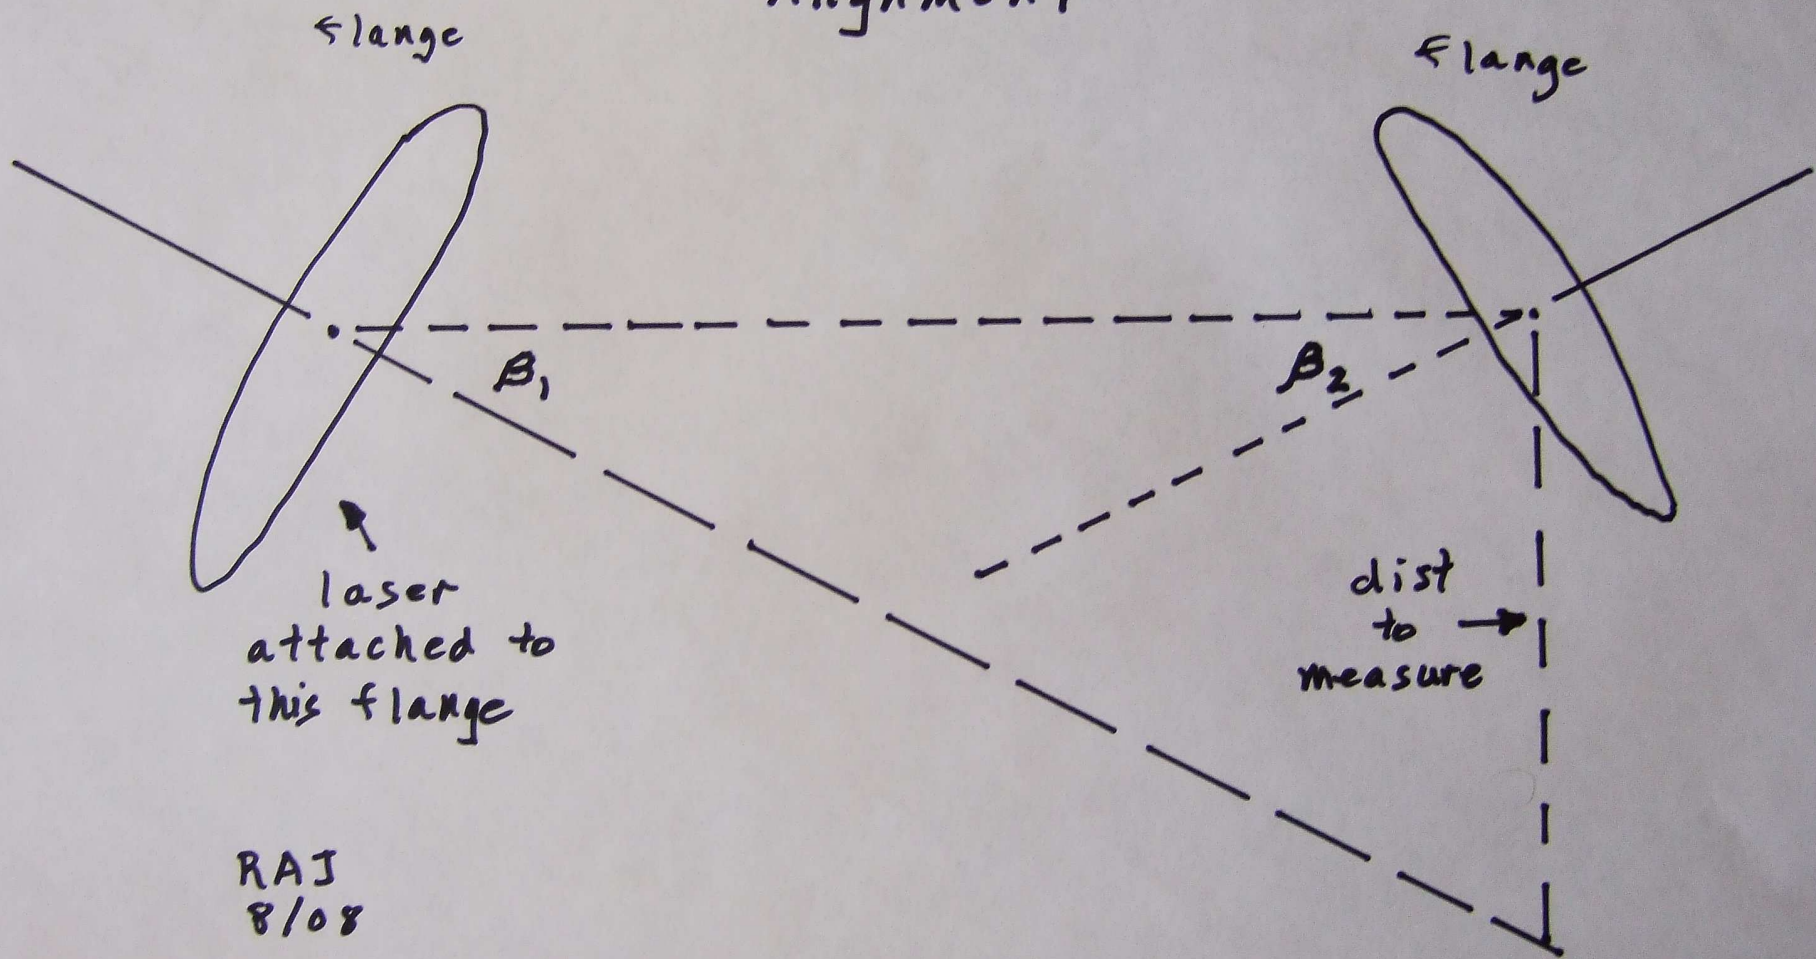 Alignment
flange
flange
β₁
β₂
laser
attached to
this flange
dist
to
measure
RAJ
8/08